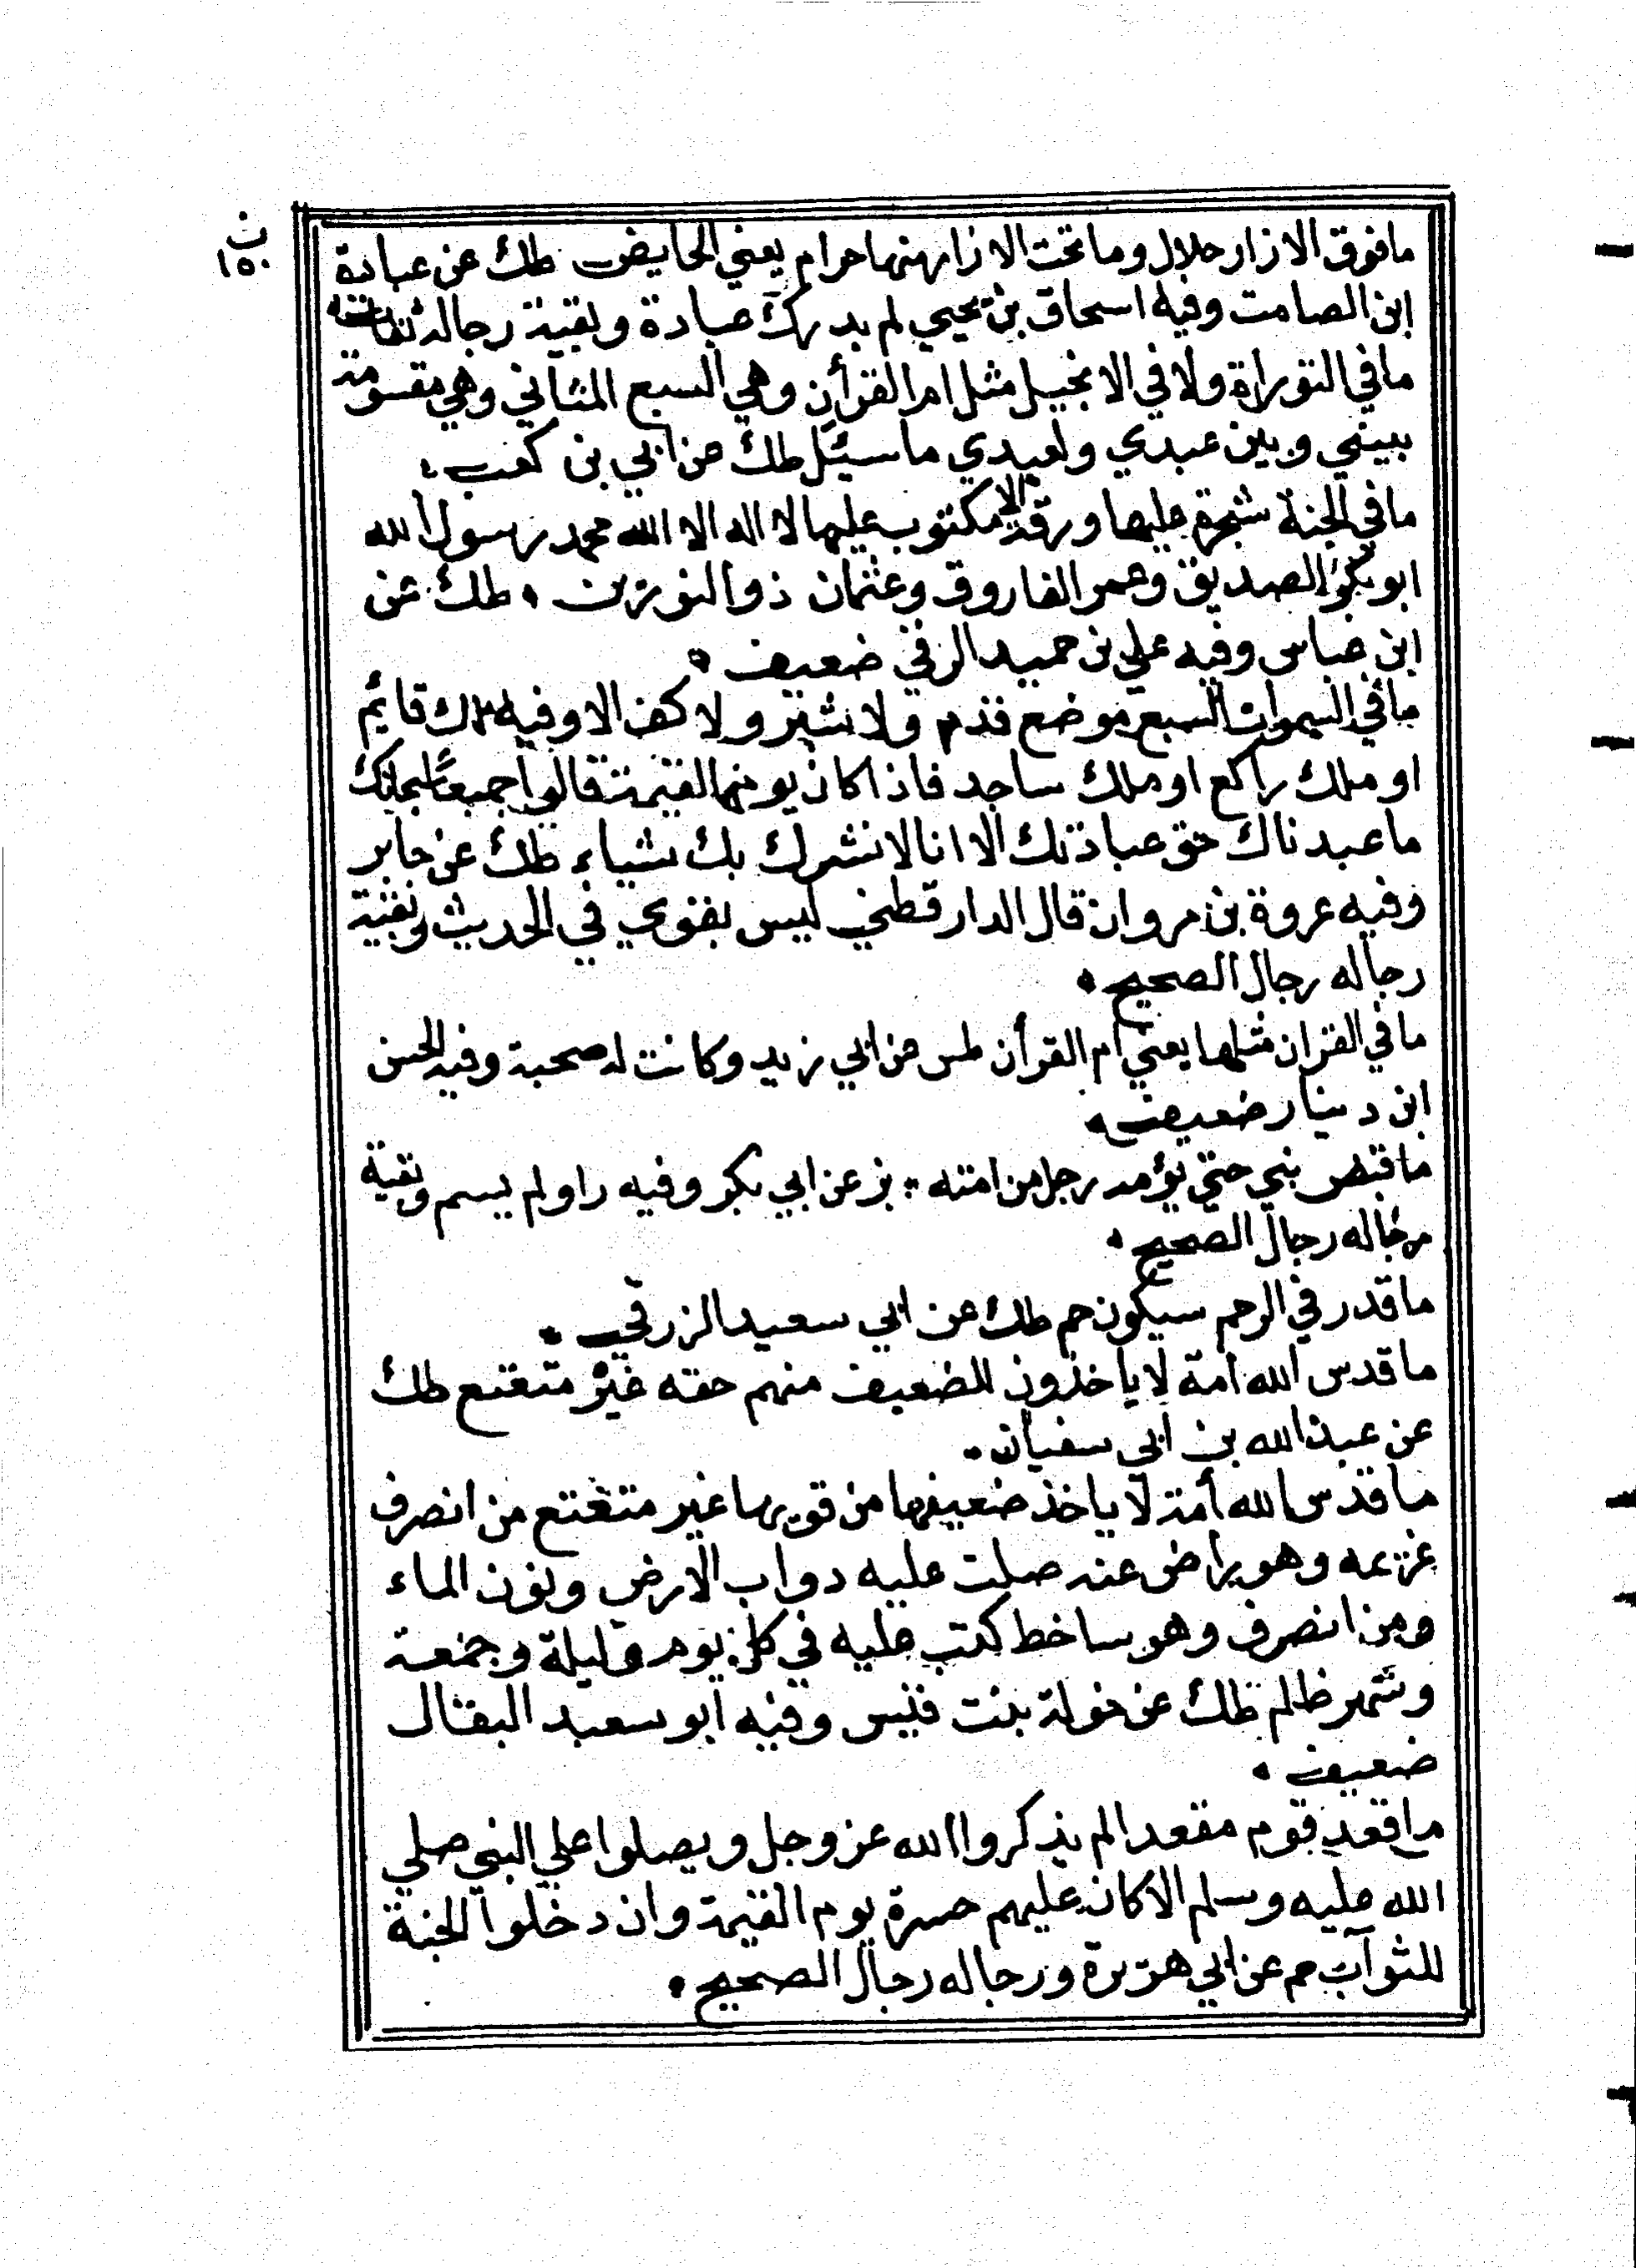 ث
١٥٠
مافوق الازار حلال وما تحت الازار منها حرام يعني الحايض طك عن عبادة
ابن الصامت وفيه اسحاق بن يحيي لم يدرك عبادة وبقية رجاله ثقات
ما في التوراة ولا في الانجيل مثل ام القرأن وهي السبع المثاني وهي مقسومة
بيني وبين عبدي ولعبدي ما سئل طك عن ابي بن كعب
ما في الجنة شجرة عليها ورقة الا مكتوب عليها لا اله الا الله محمد رسول الله
ابو بكر الصديق وعمر الفاروق وعثمان ذو النورين طك عن
ابن عباس وفيه علي بن حميد الرقي ضعيف
ما في السموات السبع موضع قدم ولا شبر ولا كف الا وفيه ملك قايم
او ملك راكع او ملك ساجد فاذا كان يوم القيمة قالوا جميعا سبحانك
ما عبدناك حق عبادتك الا انا لا نشرك بك شياء طك عن جابر
وفيه عروة بن مروان قال الدارقطني ليس بقوي في الحديث وبقية
رجاله رجال الصحيح
ما في القران مثلها يعني ام القرأن طس عن ابي زيد وكانت له صحبة وفيه الحسن
ابن دينار ضعيف
ما قبض نبي حتي يؤمه رجل من امته بز عن ابي بكر وفيه راو لم يسم وبقية
رجاله رجال الصحيح
ما قدر في الرحم سيكون حم طك عن ابي سعيد الزرقي
ما قدس الله امة لا ياخذون للضعيف منهم حقه غير متعتع طك
عن عبد الله بن ابي سفيان
ما قدس الله أمة لا ياخذ ضعيفها من قويها غير متعتع من انصرف
غريمه وهو راض عنه صلت عليه دواب الارض ونون الماء
ومن انصرف وهو ساخط كتب عليه في كل يوم وليلة وجمعة
وشهر ظالم طك عن خولة بنت قيس وفيه ابو سعيد البقال
ضعيف
ما قعد قوم مقعدا لم يذكروا الله عز وجل ويصلوا علي النبي صلي
الله عليه وسلم الا كان عليهم حسرة يوم القيمة وان دخلوا الجنة
للثواب حم عن ابي هريرة ورجاله رجال الصحيح